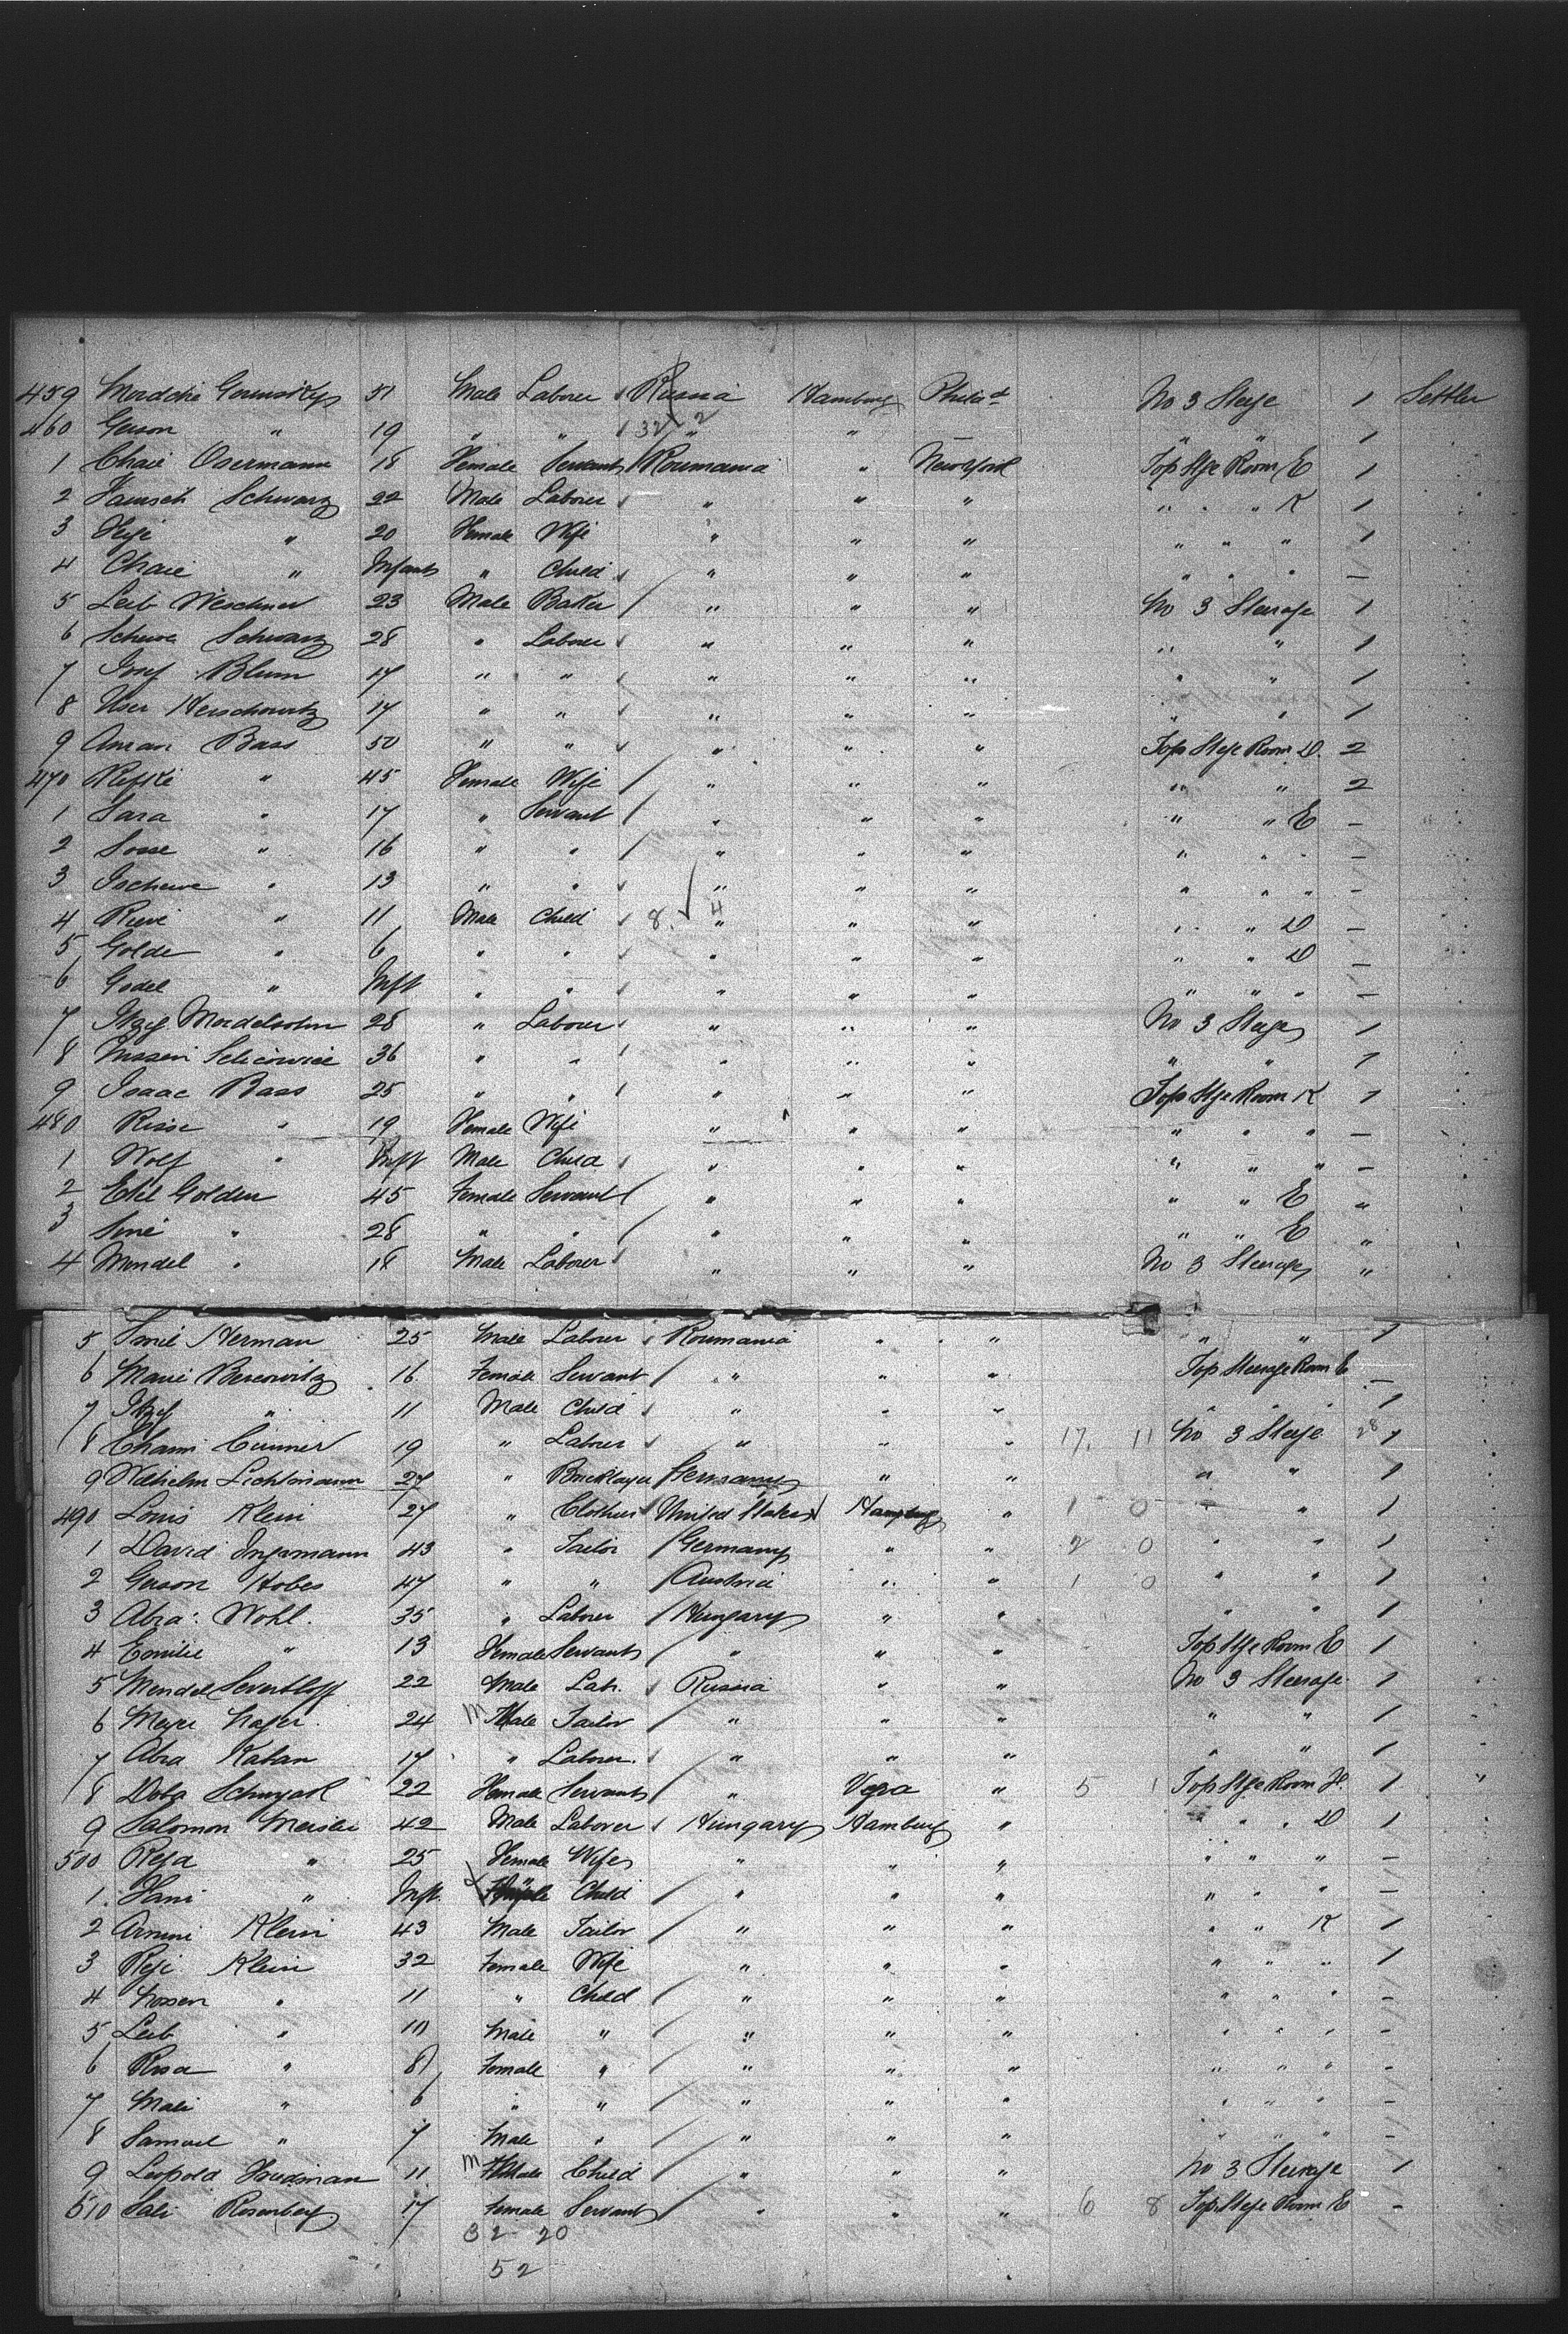 459 Mordche 51 Male Laborer Russia Hamburg Philad No 3 Stege 1 Settler
460 Gerson " 19 " " 32 2 " 1
1 Chaie Osermann 18 Female Servant Roumania " New York Top Stge Room E 1
2 Schwarz 22 Male Laborer " " " " " " K 1
3 " 20 Female Wife " " " " " " 1
4 Chaie " Infant " Child " " " " " " –
5 Leib 23 Male Baker " " " No 3 Steerage 1
6 Schwarz 28 " Laborer " " " " " 1
7 Josef Blum 17 " " " " " " " 1
8 User Herschowitz 17 " " " " " " " 1
9 Bass 50 " " " " " Top Stge Room D. 2
470 " 45 Female Wife " " " " " 2
1 Sara " 17 " Servant " " " " " E –
2 Sosse " 16 " " " " " " " " –
3 " 13 " " " " " " " " –
4 " 11 Male Child 8. 4 " " " " " D –
5 Golde " 6 " " " " " " " D –
6 Godel " Inft " " " " " " " " –
7 Itzig Mordelsohn 28 " Laborer " " " No 3 Stege 1
8 36 " " " " " " " 1
9 Isaac Bass 25 " " " " " Top Stge Room K 1
480 Risse " 19 Female Wife " " " " " " –
1 Wolf " Inft Male Child " " " " " " –
2 Etel Golden 45 Female Servant " " " " " E "
3 " 28 " " " " " " " E "
4 Mendel " 18 Male Laborer " " " No 3 Steerage "
5 Herman 25 Male Laborer Roumania " " " " 1
6 Marie Bercowitz 16 Female Servant " " " Top Steerage Room E –
7 Itzig " 11 Male Child " " " " " " 1
8 19 " Laborer " " " 17. 11 No 3 Steege 28 1
9 Wilhelm Lichtmann 27 " Bricklayer Germany " " " " 1
490 Louis Klein 27 " Clothier United States Hamburg " 1 0 " " 1
1 David Ingermann 43 " Tailor Germany " " 2 0 " " 1
2 Gerson Hobes 47 " " Austria " " 1 0 " " 1
3 Abra: Wohl. 35 " Laborer Hungary " " " " 1
4 Emilie " 13 Female Servant " " " Top Stge Room E 1
5 Mendel 22 Male Lab. Russia " " No 3 Steerage 1
6 Meyer 24 M Male Tailor " " " " " 1
7 Abra Kaban 17 " Laborer. " " " " " 1
8 Doba 22 Female Servant " Vega " 5 1 Top Stge Room H. 1 "
9 Salomon 42 Male Laborer Hungary Hamburg " " " " D 1
500 " 25 Female Wife " " " " " " –
1 Hani " Inft. Child " " " " " " –
2 Klein 43 Male Tailor " " " " " K 1
3 Klein 32 Female Wife " " " " " " 1
4 " 11 " Child " " " " " " –
5 Leib " 10 Male " " " " " " " –
6 Rosa " 8 Female " " " " " " " –
7 Mali " 6 " " " " " " " " –
8 Samuel " 7 Male " " " " " " " –
9 Leopold Friedman 11 M Male Child " " " No 3 Steerage 1
510 Sali Rosenberg 17 Female Servant " " " 6 8 Top Stege Room E –
32 – 20
52